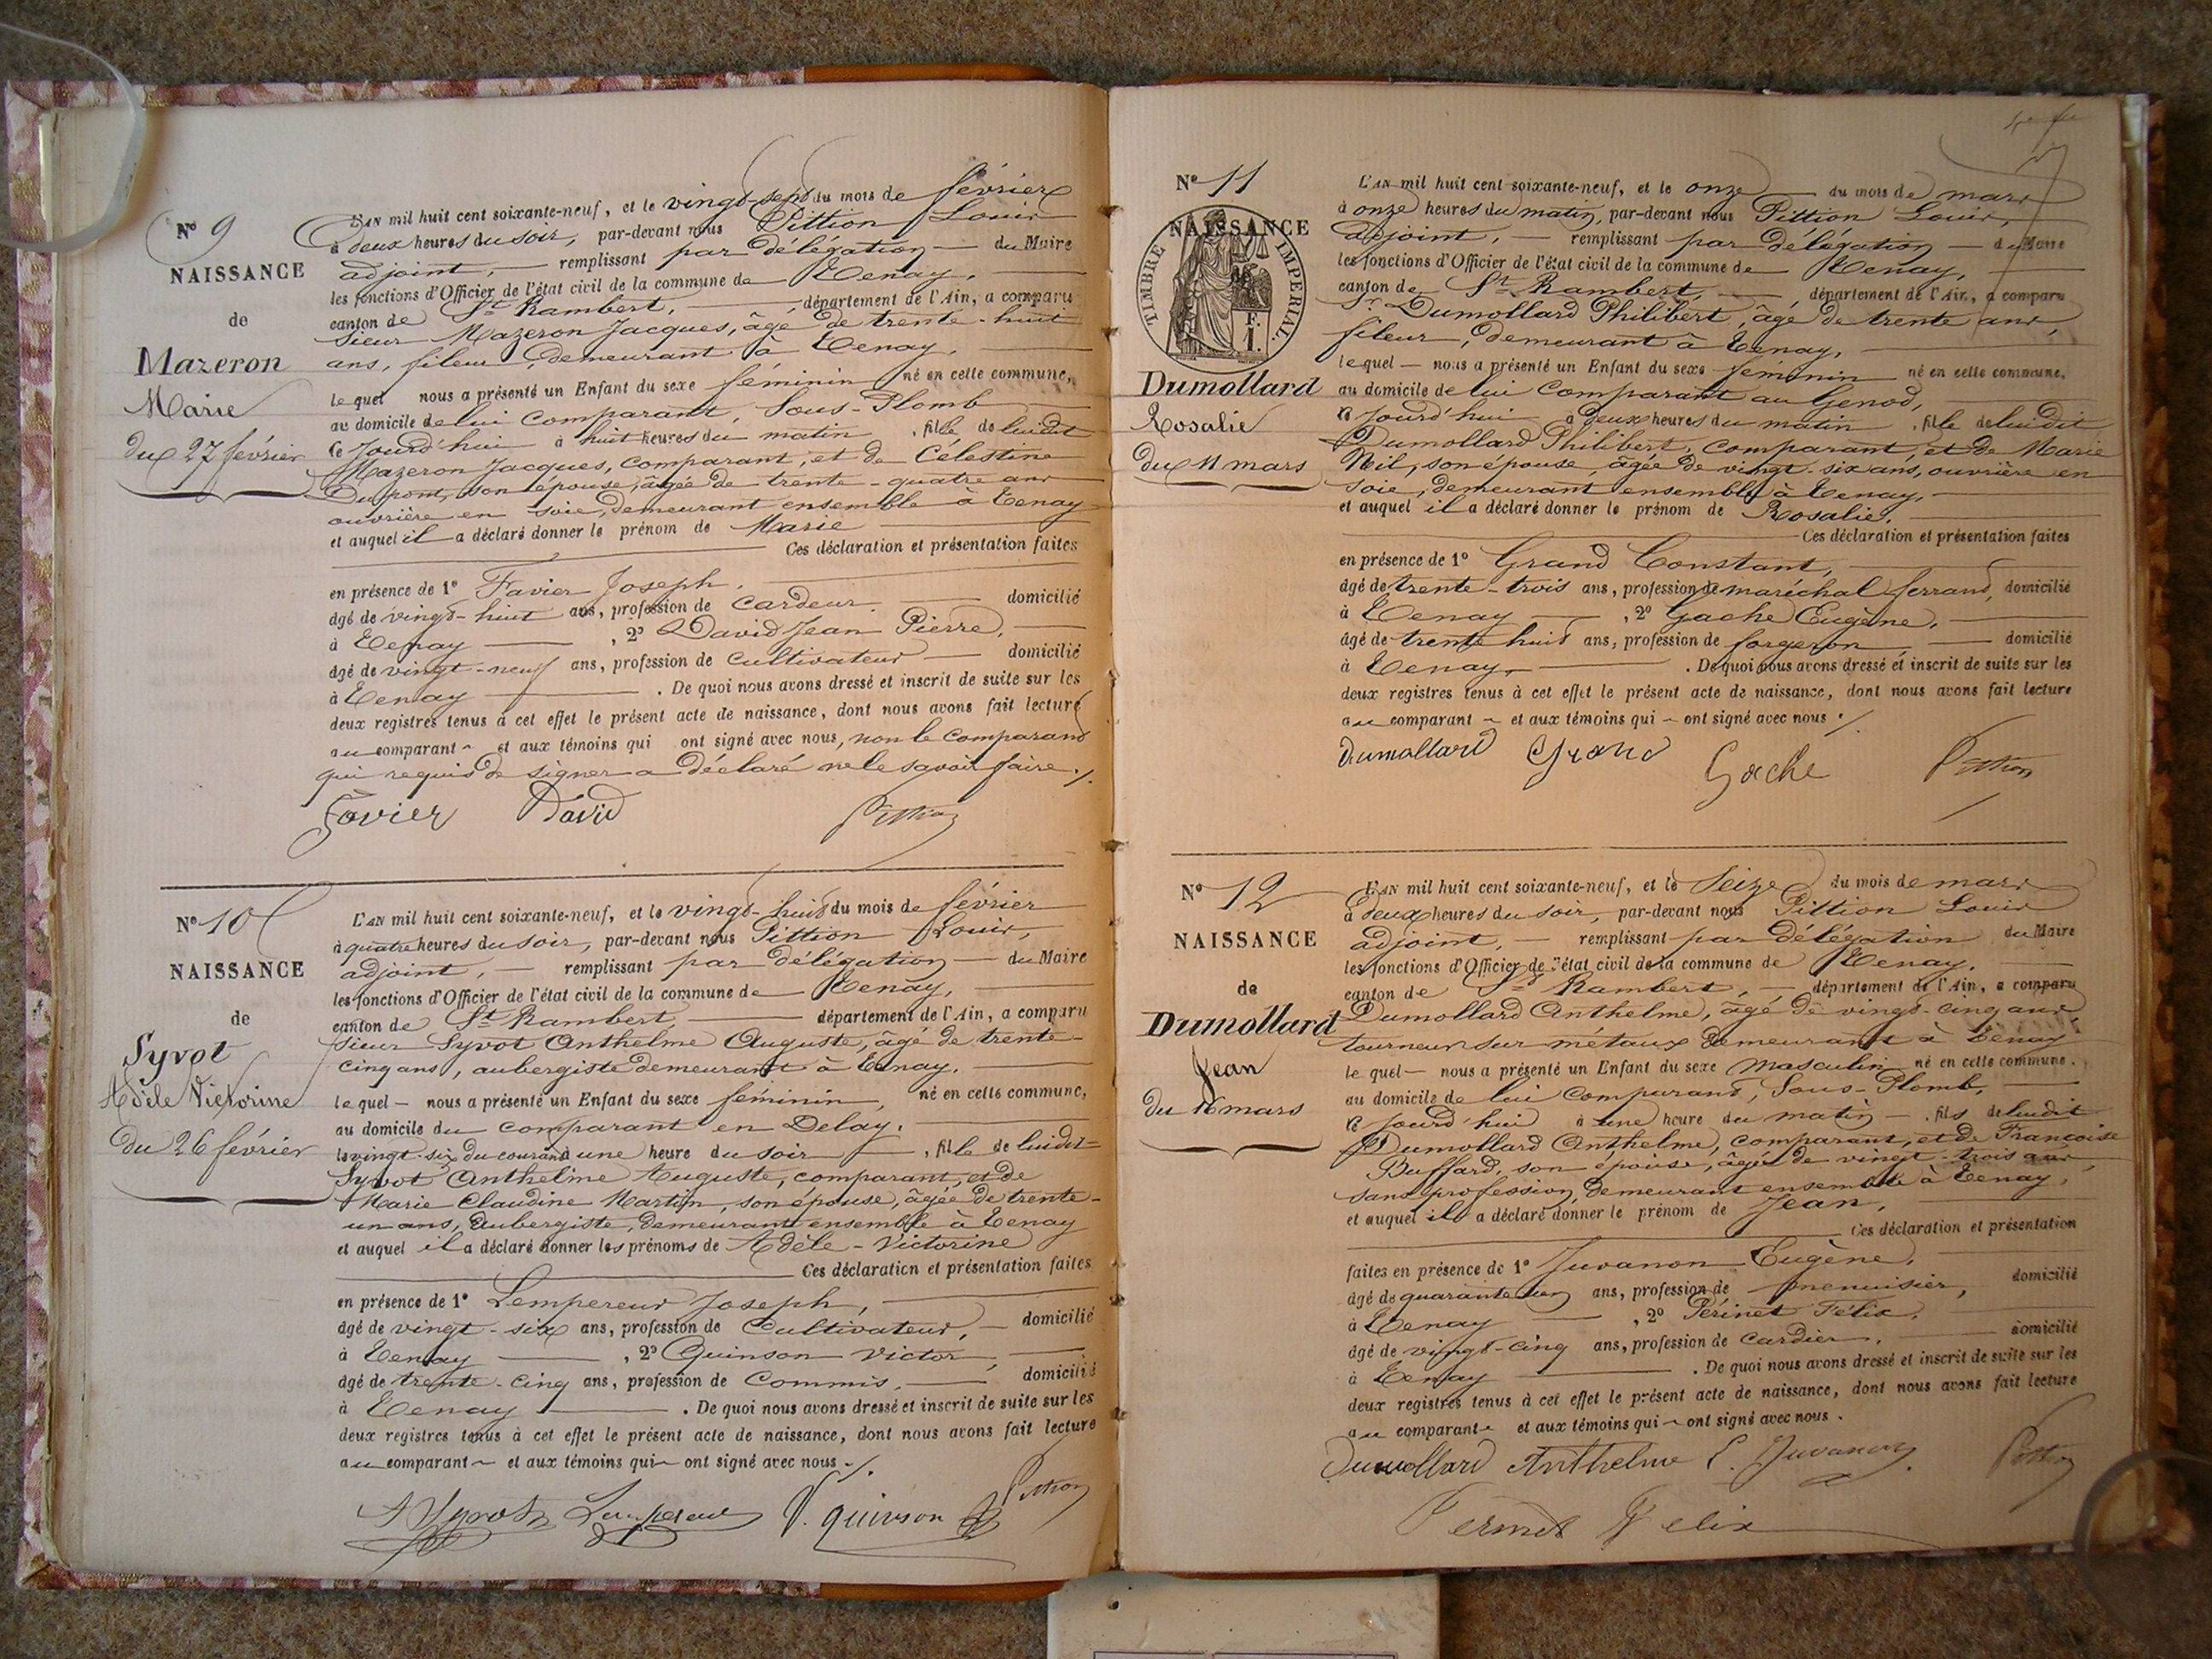 No 9
NAISSANCE
de
Mazeron
Marie
du 27 février
L'AN mil huit cent soixante-neuf, et le vingt-sept du mois de février
à deux heures du soir, par-devant nous Pittion Louis
adjoint, — remplissant par délégation — du Maire
les fonctions d'Officier de l'état civil de la commune de Tenay,
canton de St Rambert, — département de l'Ain, a comparu
sieur Mazeron Jacques, âgé de trente-huit
ans, fileur, demeurant à Tenay,
lequel nous a présenté un Enfant du sexe féminin né en cette commune,
au domicile de lui comparant, Sous-Plomb
ce jourd'hui à huit heures du matin, fille de luidit
Mazeron Jacques, comparant, et de Célestine
Dupont, son épouse, âgée de trente-quatre ans
ouvrière en soie, demeurant ensemble à Tenay
et auquel il a déclaré donner le prénom de Marie
Ces déclaration et présentation faites
en présence de 1° Favier Joseph,
âgé de vingt-huit ans, profession de cardeur, domicilié
à Tenay — , 2° David Jean Pierre,
âgé de vingt-neuf ans, profession de cultivateur — domicilié
à Tenay — . De quoi nous avons dressé et inscrit de suite sur les
deux registres tenus à cet effet le présent acte de naissance, dont nous avons fait lecture
au comparant et aux témoins qui ont signé avec nous, non le comparant
qui requis de signer a déclaré ne le savoir faire ./.
Favier David Pittion
No 10
NAISSANCE
de
Syvot
Adèle Victorine
du 26 février
L'AN mil huit cent soixante-neuf, et le vingt-huit du mois de février
à quatre heures du soir, par-devant nous Pittion Louis,
adjoint, — remplissant par délégation — du Maire
les fonctions d'Officier de l'état civil de la commune de Tenay,
canton de St Rambert, — département de l'Ain, a comparu
sieur Syvot Anthelme Auguste, âgé de trente-
cinq ans, aubergiste demeurant à Tenay,
lequel — nous a présenté un Enfant du sexe féminin, né en cette commune,
au domicile du comparant en Delay,
le vingt-six du courant à une heure du soir, fille de luidit
Syvot Anthelme Auguste, comparant, et de
Marie Claudine Martin, son épouse, âgée de trente-
un ans, aubergiste, demeurant ensemble à Tenay
et auquel il a déclaré donner les prénoms de Adèle-Victorine
Ces déclaration et présentation faites
en présence de 1° Lempereur Joseph,
âgé de vingt-six ans, profession de cultivateur, — domicilié
à Tenay — , 2° Quinson Victor,
âgé de trente-cinq ans, profession de commis, — domicilié
à Tenay — . De quoi nous avons dressé et inscrit de suite sur les
deux registres tenus à cet effet le présent acte de naissance, dont nous avons fait lecture
au comparant et aux témoins qui ont signé avec nous ./.
A Syvot Lempereur V. quinson Pittion
No 11
NAISSANCE
TIMBRE IMPERIAL
1 F.
Dumollard
Rosalie
du 11 mars
L'AN mil huit cent soixante-neuf, et le onze — du mois de mars
à onze heures du matin, par-devant nous Pittion Louis,
adjoint, — remplissant par délégation — du Maire
les fonctions d'Officier de l'état civil de la commune de Tenay,
canton de St Rambert, — département de l'Ain, a comparu
Sr. Dumollard Philibert, âgé de trente ans,
fileur, demeurant à Tenay,
lequel — nous a présenté un Enfant du sexe féminin né en cette commune,
au domicile de lui comparant au Genod,
ce jourd'hui à deux heures du matin, fille de luidit
Dumollard Philibert, comparant, et de Marie
Nil, son épouse, âgée de vingt-six ans, ouvrière en
soie, demeurant ensemble à Tenay,
et auquel il a déclaré donner le prénom de Rosalie,
Ces déclaration et présentation faites
en présence de 1° Grand Constant,
âgé de trente-trois ans, profession de maréchal ferrand, domicilié
à Tenay — , 2° Gache Eugène,
âgé de trente huit ans, profession de forgeron — domicilié
à Tenay, — . De quoi nous avons dressé et inscrit de suite sur les
deux registres tenus à cet effet le présent acte de naissance, dont nous avons fait lecture
au comparant et aux témoins qui ont signé avec nous ./.
Dumollard Grand Gache Pittion
No 12
NAISSANCE
de
Dumollard
Jean
du 16 mars
L'AN mil huit cent soixante-neuf, et le seize du mois de mars
à deux heures du soir, par-devant nous Pittion Louis
adjoint, — remplissant par délégation du Maire
les fonctions d'Officier de l'état civil de la commune de Tenay,
canton de St Rambert, — département de l'Ain, a comparu
Dumollard Anthelme, âgé de vingt-cinq ans,
tourneur sur métaux demeurant à Tenay
lequel — nous a présenté un Enfant du sexe masculin né en cette commune,
au domicile de lui comparant, Sous-Plomb,
ce jourd'hui à une heure du matin — , fils de luidit
Dumollard Anthelme, comparant, et de Françoise
Buffard, son épouse, âgée de vingt-trois ans,
sans profession, demeurant ensemble à Tenay,
et auquel il a déclaré donner le prénom de Jean,
Ces déclaration et présentation
faites en présence de 1° Juvanon Eugène,
âgé de quarante ans, profession de menuisier, domicilié
à Tenay — , 2° Périnet Félix,
âgé de vingt-cinq ans, profession de cardier, domicilié
à Tenay — . De quoi nous avons dressé et inscrit de suite sur les
deux registres tenus à cet effet le présent acte de naissance, dont nous avons fait lecture
au comparant et aux témoins qui ont signé avec nous .
Dumollard Anthelme E. Juvanon Pittion
Felix